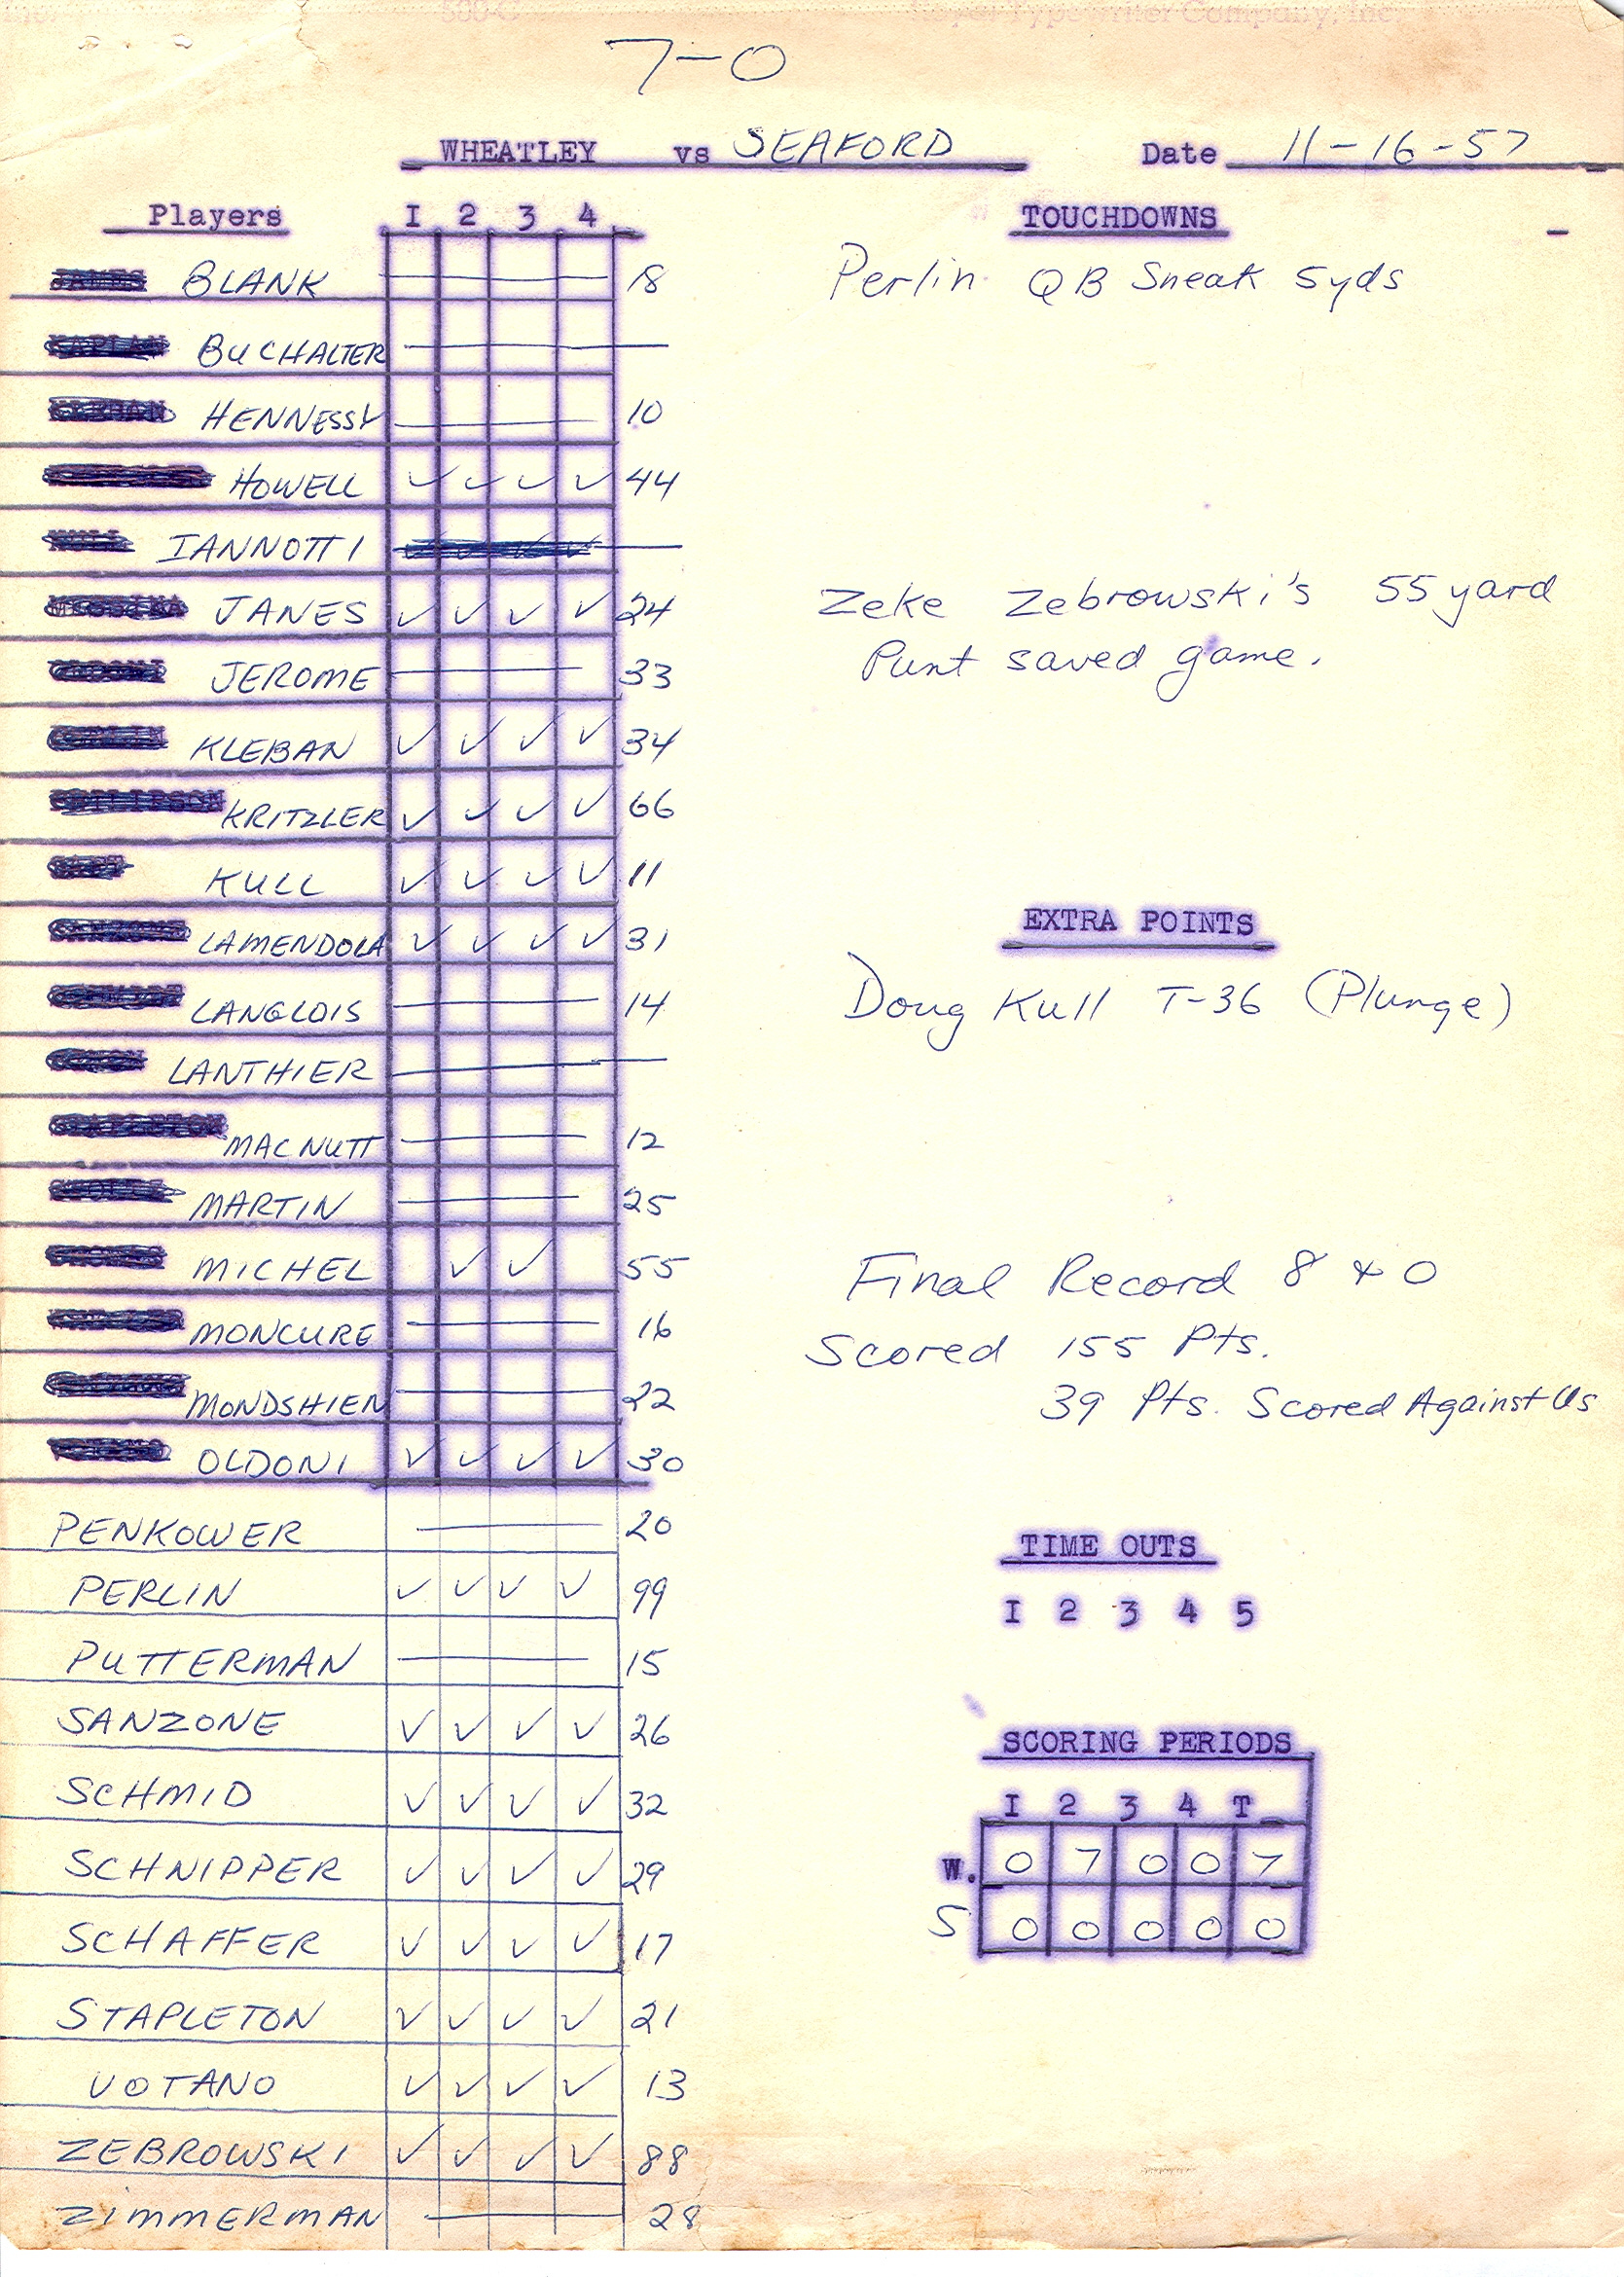 500-C Royal Typewriter Company, Inc.
7-0
WHEATLEY vs SEAFORD Date 11-16-57
Players I 2 3 4 TOUCHDOWNS
BLANK 18 Perlin QB Sneak 5yds
BUCHALTER
HENNESSY 10
HOWELL ✓ ✓ ✓ ✓ 44
IANNOTTI
JANES ✓ ✓ ✓ ✓ 24 Zeke Zebrowski's 55 yard
JEROME 33 Punt saved game.
KLEBAN ✓ ✓ ✓ ✓ 34
KRITZLER ✓ ✓ ✓ ✓ 66
KULL ✓ ✓ ✓ ✓ 11
EXTRA POINTS
LAMENDOLA ✓ ✓ ✓ ✓ 31
LANGLOIS 14 Doug Kull T-36 (Plunge)
LANTHIER
MACNUTT 12
MARTIN 25
MICHEL ✓ ✓ 55 Final Record 8 & 0
MONCURE 16 Scored 155 Pts.
MONDSHIEN 22 39 Pts. Scored Against Us
OLDONI ✓ ✓ ✓ ✓ 30
PENKOWER 20 TIME OUTS
PERLIN ✓ ✓ ✓ ✓ 99 I 2 3 4 5
PUTTERMAN 15
SANZONE ✓ ✓ ✓ ✓ 26 SCORING PERIODS
SCHMID ✓ ✓ ✓ ✓ 32 I 2 3 4 T
SCHNIPPER ✓ ✓ ✓ ✓ 29 W. 0 7 0 0 7
SCHAFFER ✓ ✓ ✓ ✓ 17 S 0 0 0 0 0
STAPLETON ✓ ✓ ✓ ✓ 21
VOTANO ✓ ✓ ✓ ✓ 13
ZEBROWSKI ✓ ✓ ✓ ✓ 88
ZIMMERMAN 28